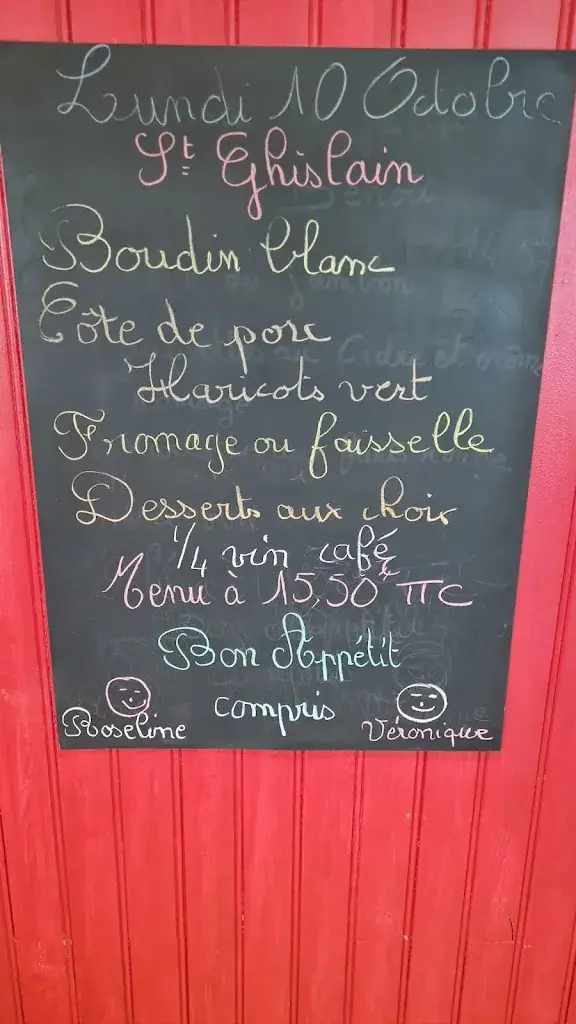 Lundi 10 Octobre
St Ghislain
Boudin blanc
Côte de porc
Haricots vert
Fromage ou faisselle
Desserts aux choix
1/4 vin café
Menu à 15,50 € TTC
Bon Appétit
compris
Roseline
Véronique